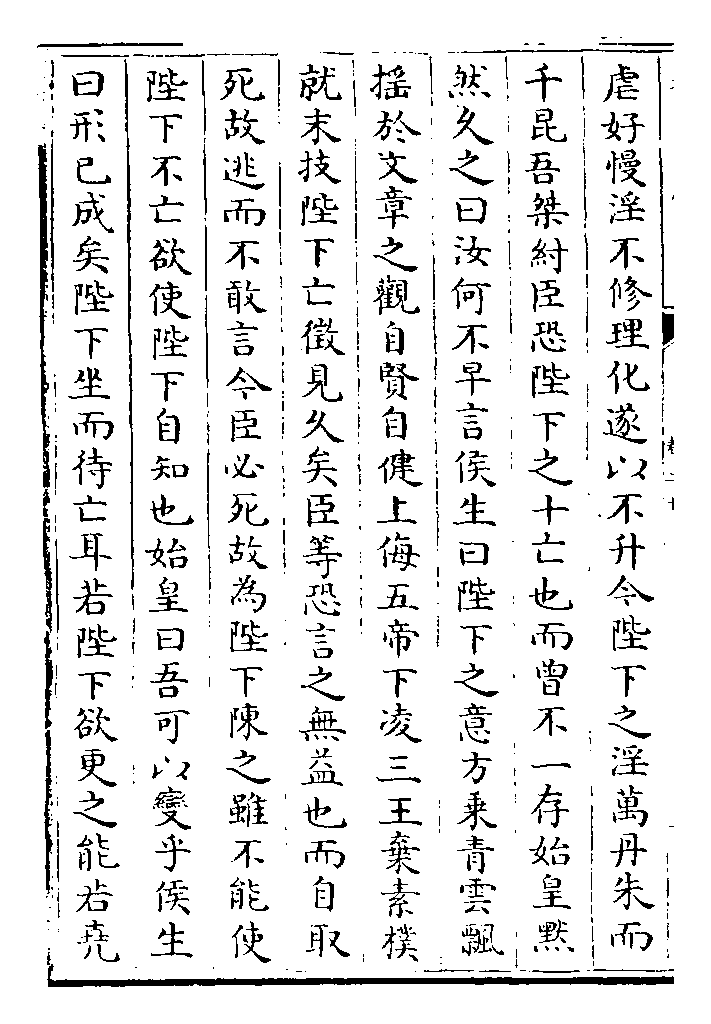 虐好慢淫不修理化遂以不升今陛下之淫萬丹朱而
千昆吾桀紂臣恐陛下之十亡也而曾不一存始皇黙
然久之曰汝何不早言侯生曰陛下之意方乗青雲飄
揺於文章之觀自賢自健上侮五帝下凌三王棄素樸
就末技陛下亡徴見久矣臣等恐言之無益也而自取
死故逃而不敢言今臣必死故為陛下陳之雖不能使
陛下不亡欲使陛下自知也始皇曰吾可以變乎侯生
曰形已成矣陛下坐而待亡耳若陛下欲更之能若堯